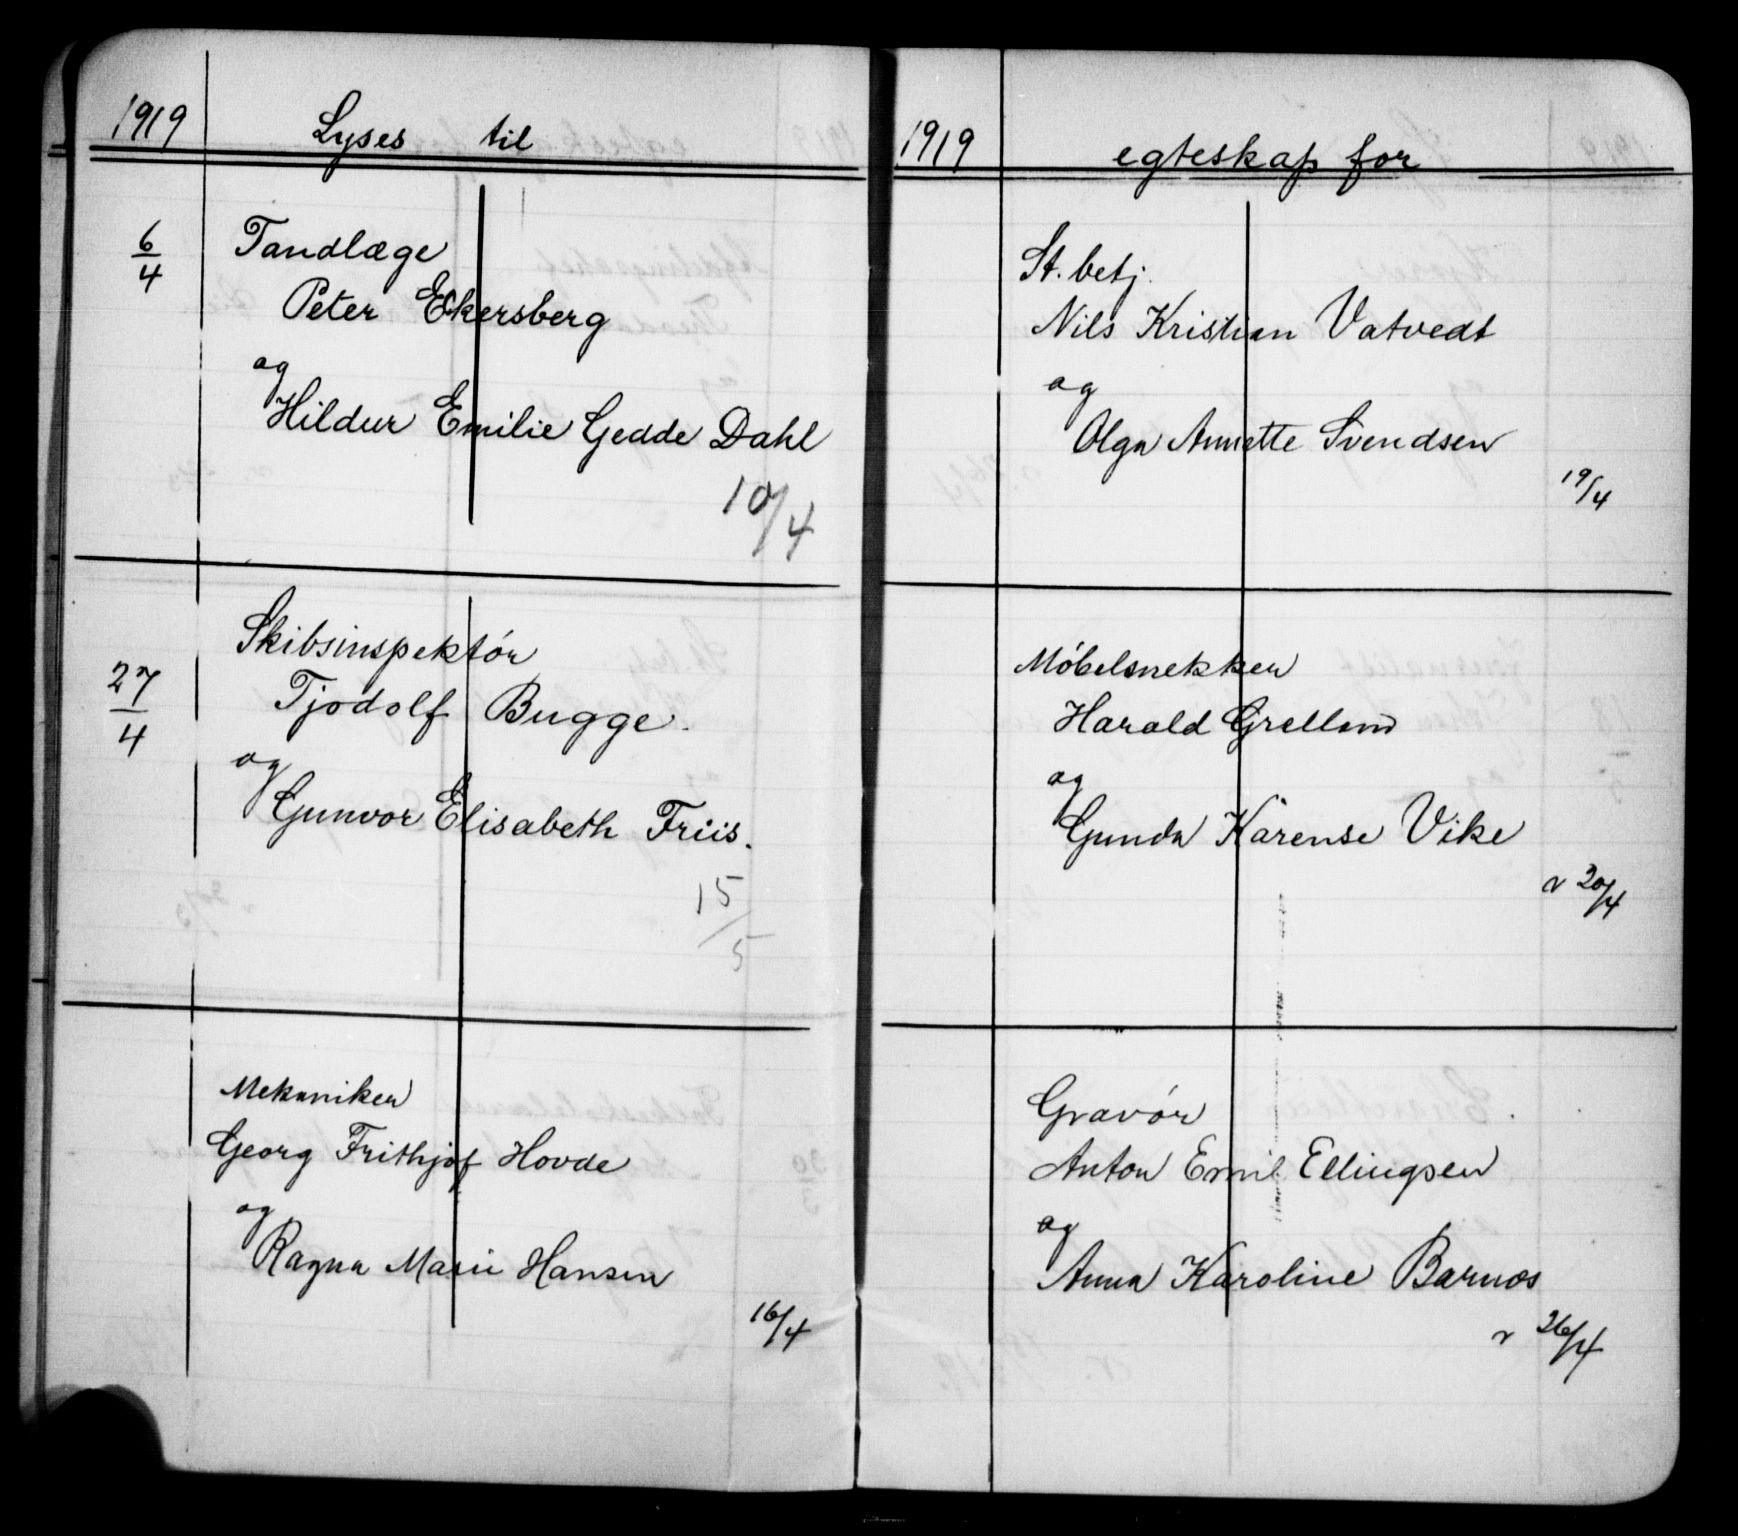 1919
Lyses til
6/4
Tandlæge
Peter Ekersberg
og
Hildur Emilie Gedde Dahl
10/4
27/4
Skibsinspektór
Tjodolf Bugge.
og
Gunvor Elisabeth Friis.
15/5
Mekaniker
Georg Frithjof Hovde
og
Ragna Marie Hansen
16/4
1919
egteskap for
St. betj.
Nils Kristian Vatvedt
og
Olga Annette Svendsen
19/4
Móbelsnekker
Harald Grelland
og
Gunda Karense Vike
v 20/4
Gravór
Anton Emil Ellingsen
og
Anna Karoline Barnos
v 26/4